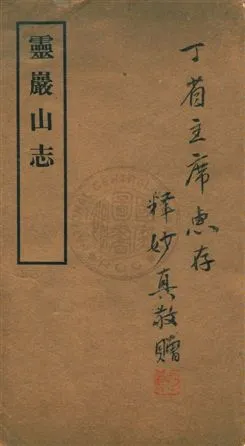 丁省主席惠存
釋妙真敬贈
靈巖山志